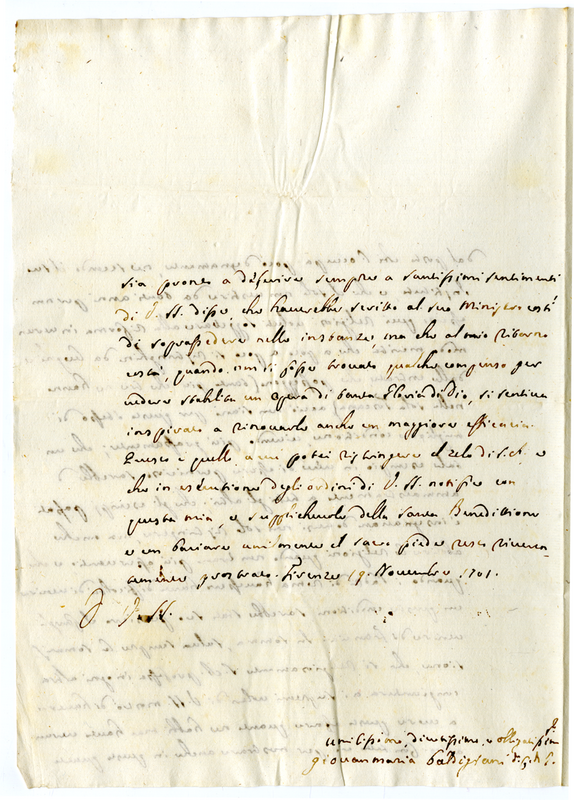 sia pronto a deferire sempre a santissimi sentimenti
di V. SS. disse, che haverebbe scritto al suo Ministro costì
di soprassedere nelle instanze, ma che al mio ritorno
costà, quando non si fosse trovato qualche compenso per
vedere stabilita un Opera di tanta Gloria di Dio, si sentiva
inspirato a rinovarle anche con maggiore efficacia.
Questo è quello a me potei ristringere il zelo di S.A. e
che in esecutione degli ordini di V. SS. notifico con
questa mia, e supplicandola della Santa Benedittione
e con baciare umilmente il sacro piede resto riveren-
temente prostrato. Firenze 19. Novembre 1701.
D V. SS.
umilissimo, devotissimo, e obligatissimo
Giovanmaria Baldigiani d. C. d. G.